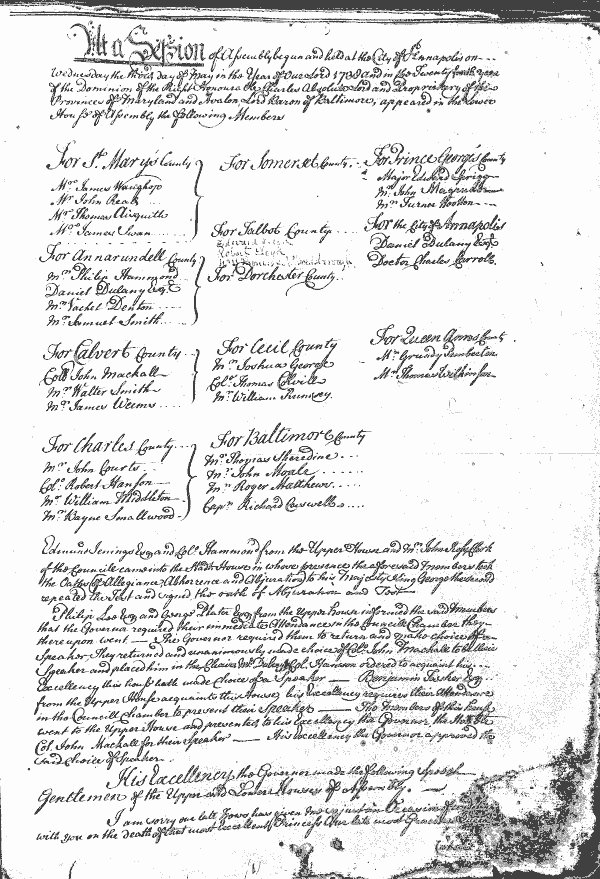 At a Session of Assembly begun and held at the City of Annapolis on
Wednesday the third day of May in the Year of Our Lord 1738 and in the Twenty fourth year
of the Dominion of the Right Honourable Charles Absolute Lord and Proprietary of the
Provinces of Maryland and Avalon, Lord Baron of Baltimore, appeared in the Lower
House of Assembly the following Members
For St. Mary's County
Mr. James Waughop
Mr. John Read
Mr. Thomas Aisquith
Mr. James Swan
For Annarundell County
Mr. Philip Hammond
Daniel Dulany Esqr.
Mr. Vachel Denton
Mr. Samuel Smith
For Calvert County
Coll. John Mackall
Mr. Walter Smith
Mr. James Weems
For Charles County
Mr. John Courts
Col. Robert Hanson
Mr. William Middleton
Mr. Bayne Smallwood
For Somerset County
For Talbot County
Edward
Robert
For Dorchester County
For Cecil County
Mr. Joshua George
Col. Thomas Colvill
Mr. William Rumsey
For Baltimore County
Mr. Thomas Sheredine
Mr. John Moale
Mr. Roger Matthews
Capn. Richard Caswell
For Prince George's County
Major Edward Sprigg
Mr. John Magruder
Mr. Turnor Wootton
For the City of Annapolis
Daniel Dulany Esqr.
Doctor Charles Carroll
For Queen Anns County
Mr. Grundy Pemberton
Mr. Thomas Wilkinson
Edmund Jenings Esq. and Col. Hammond from the Upper House and Mr. John Ross Clerk
of the Councill came into the Stadt House in whose presence the aforesaid Members took
the Oaths of Allegiance, Abhorrence and Abjuration to his Majesty King George the second
repeated the Test and signed the oath of Abjuration and Test
Philip Lee Esq. and George Plater Esq. from the Upper House informed the said Members
that the Governor required their immediate Attendance in the Councill Chamber they
thereupon went The Governor required them to return and make choice of a
Speaker They returned and unanimously made choice of Col. John Mackall to be their
Speaker and placed him in the Chair. Mr. Dulany Col. Hanson ordered to acquaint his
Excellency this house hath made choice of a Speaker Benjamin Tasker Esq.
from the Upper House acquaints this House, his Excellency requires their Attendance
in the Councill Chamber to present their Speaker The Members of this house
went to the Upper House and presented to his Excellency the Governor, the Honble
Col. John Mackall for their Speaker His Excellency the Governor approved the
said choice of Speaker
His Excellency the Governor made the following Speech
Gentlemen of the Upper and Lower Houses of Assembly.
I am sorry our last News has given me so just an Occasion of
with you on the death of that most excellent Princess Our late most Gracious